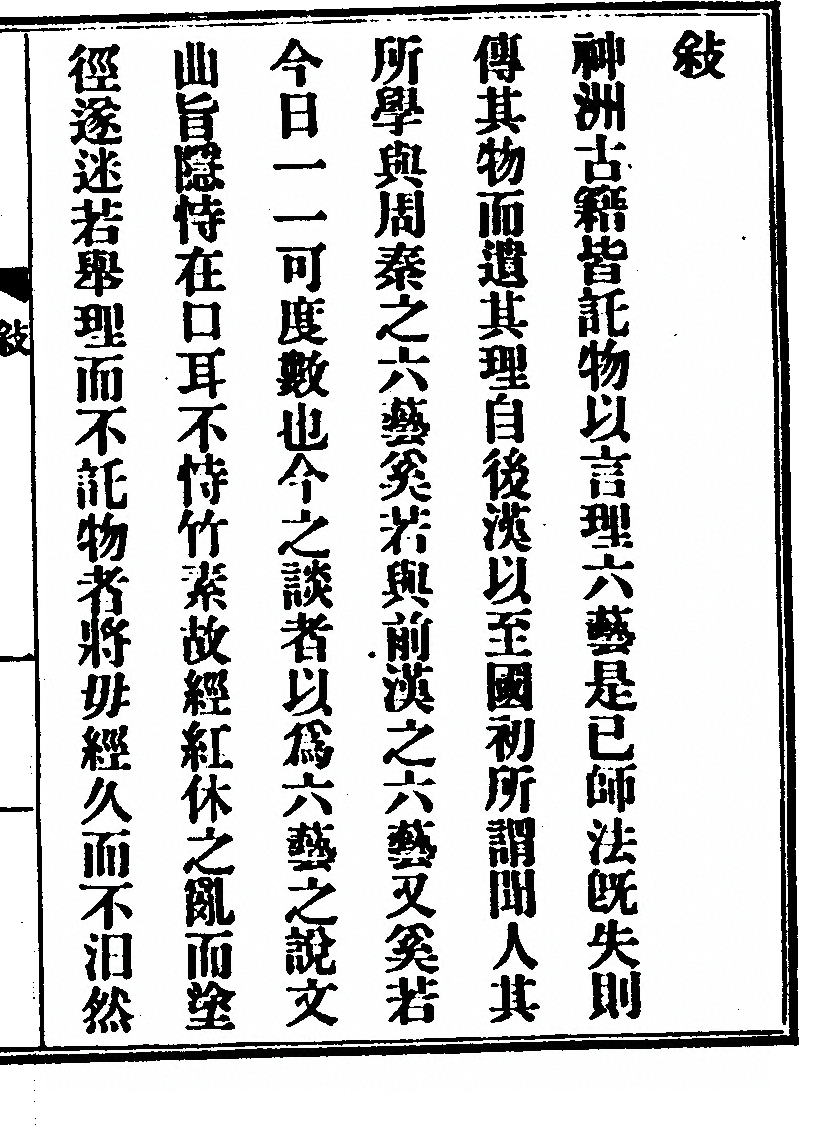 敍
神洲古籍皆託物以言理六藝是已師法旣失則
傳其物而遺其理自後漢以至國初所謂聞人其
所學與周秦之六藝奚若與前漢之六藝又奚若
今日一一可度數也今之談者以爲六藝之說文
曲旨隱恃在口耳不恃竹素故經紅休之亂而塗
徑遂迷若舉理而不託物者將毋經久而不汨然
敍